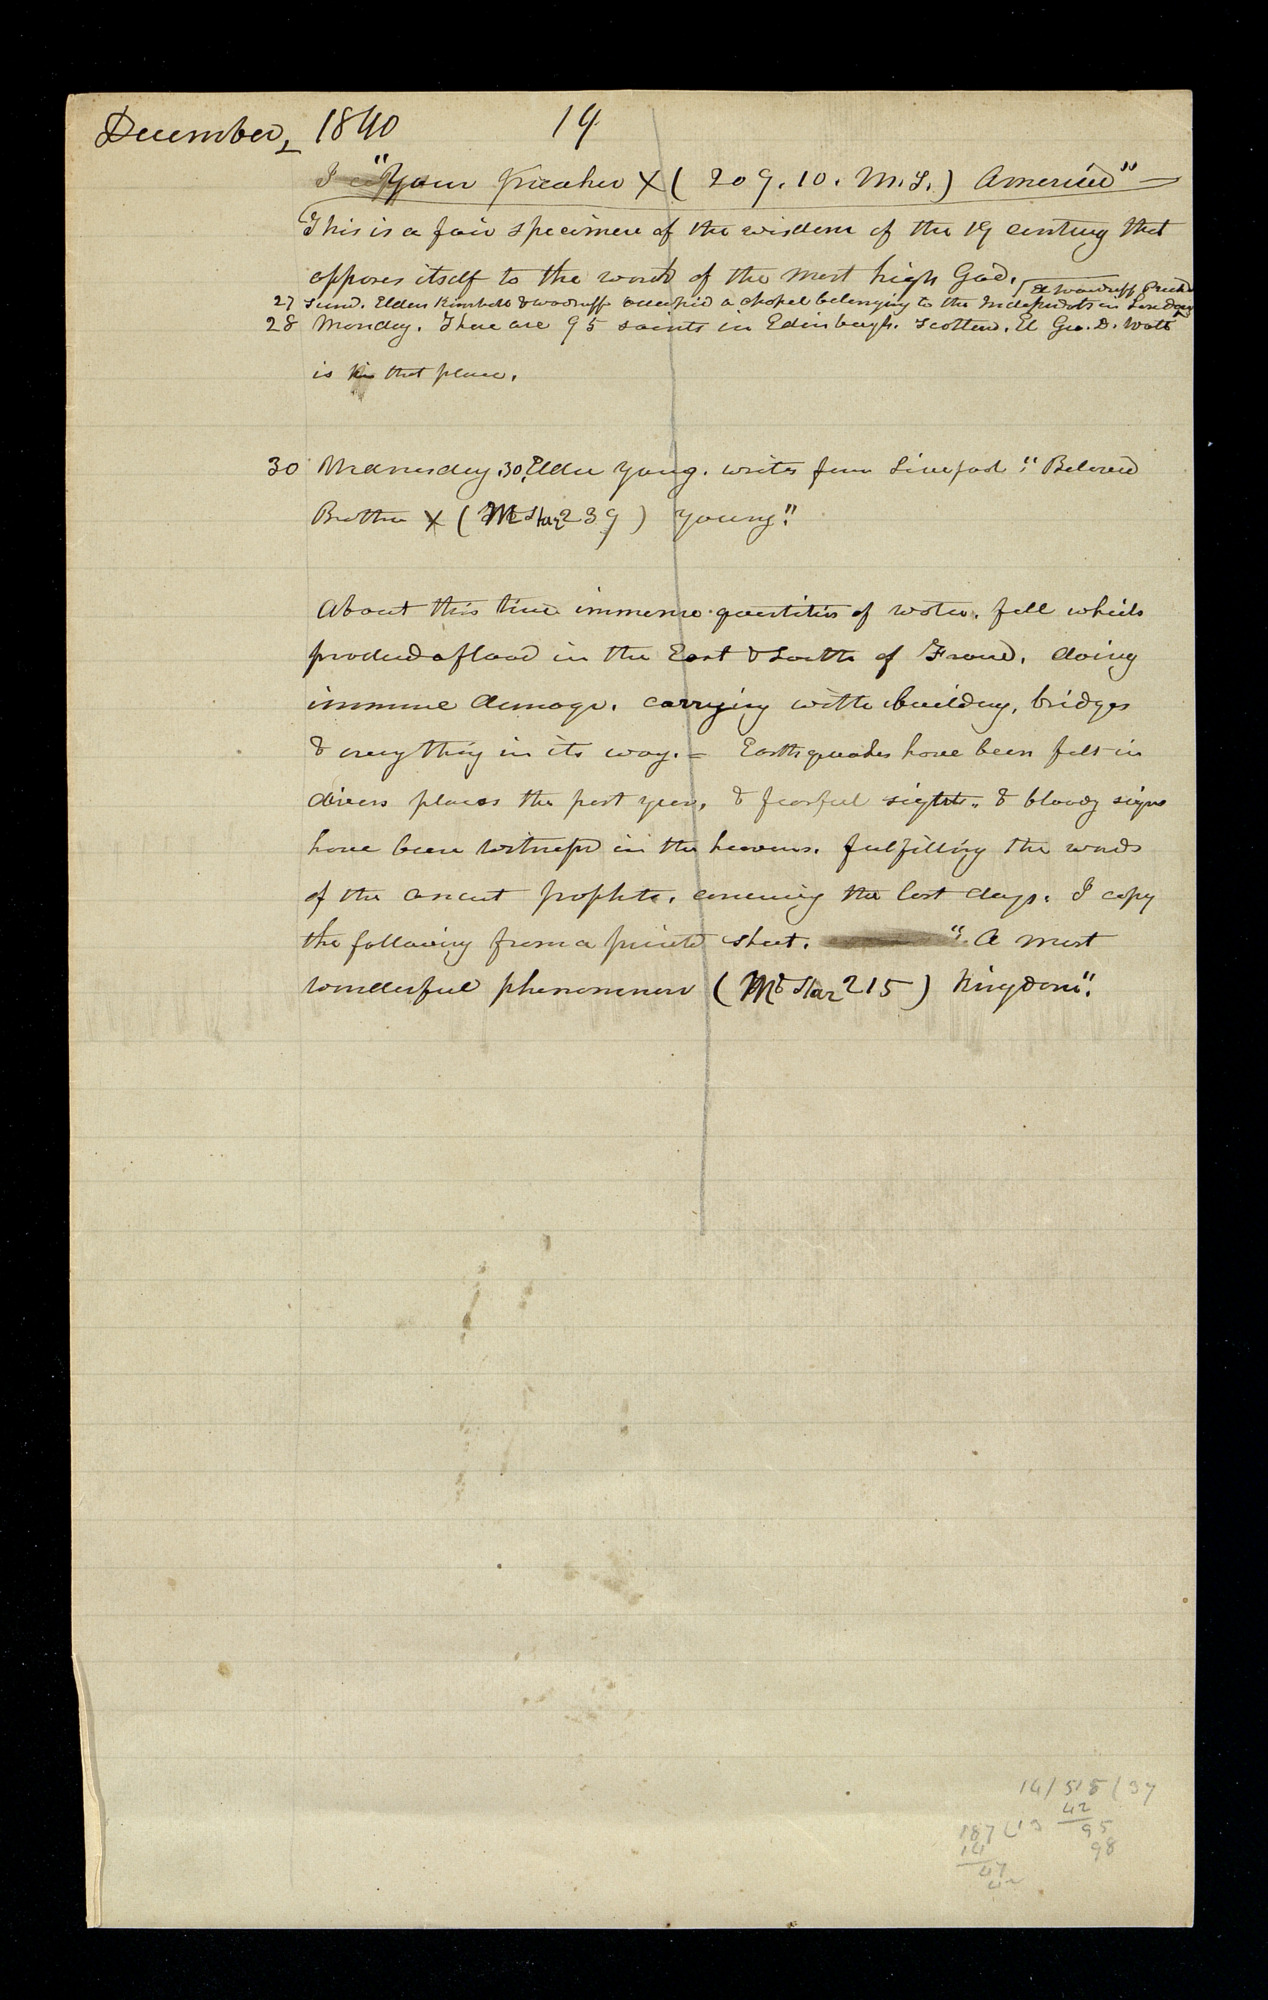 December, 1840 14
I "Your Preacher X ( 209. 10. M.S. ) America" —
This is a fair specimen of the wisdom of the 19 century that
opposes itself to the word of the most high God.
El Woodruff
27 Sund. Elders Kimball & Woodruff occupied a chapel belonging to the Independts in London
28 Monday. There are 95 saints in Edinburgh. Scotland. El Geo. D. Watt
is in that place.
30 Wednesday. 30, Elder Young. writes from Liverpool ": Beloved
Brother X ( Ml Star 239 ) Young".
About this time immense quantities of water. fell which
produced a flood in the East & South of France. doing
immense damage. carrying with building, bridges
& everything in its way. = Earthquakes have been felt in
divers places the past year, & fearful sights. & bloody signs
have been witnessed in the heavens. fulfilling the words
of the ancient prophets. concerning the last days. I copy
the following from a printed sheet. ": A most
wonderful phenomenon ( Ml Star 215 ) Kingdom".
14/515(37
42
187 (13 95
14 98
47
42